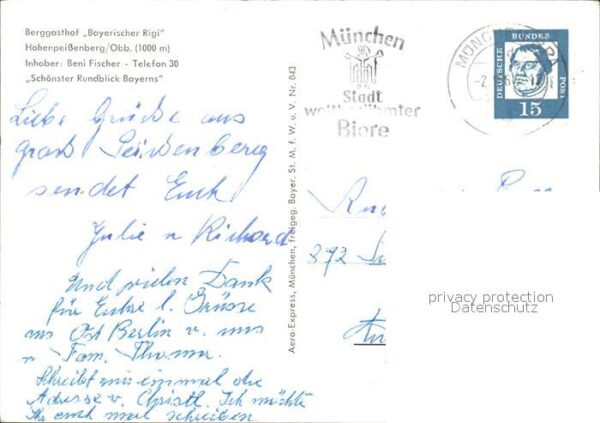 Berggasthof „Bayerischer Rigi"
Hohenpeißenberg/Obb. (1000 m)
Inhaber: Beni Fischer - Telefon 30
„Schönster Rundblick Bayerns"
München
Stadt
weltberühmter
Biere
MÜNCHEN
DEUTSCHE BUNDESPOST
15
Liebe Grüße aus
sendet Euch
Julie u Richard
Und vielen Dank
für Eure l. Grüsse
aus Ost Berlin v. uns
u Fam. Thoma.
Schreibt mir einmal die
Adresse v. Christl. Ich möchte
Ihr auch mal schreiben
Aero-Express, München, freigeg. Bayer. St. M. f. W. u. V. Nr. 043
872
privacy protection
Datenschutz